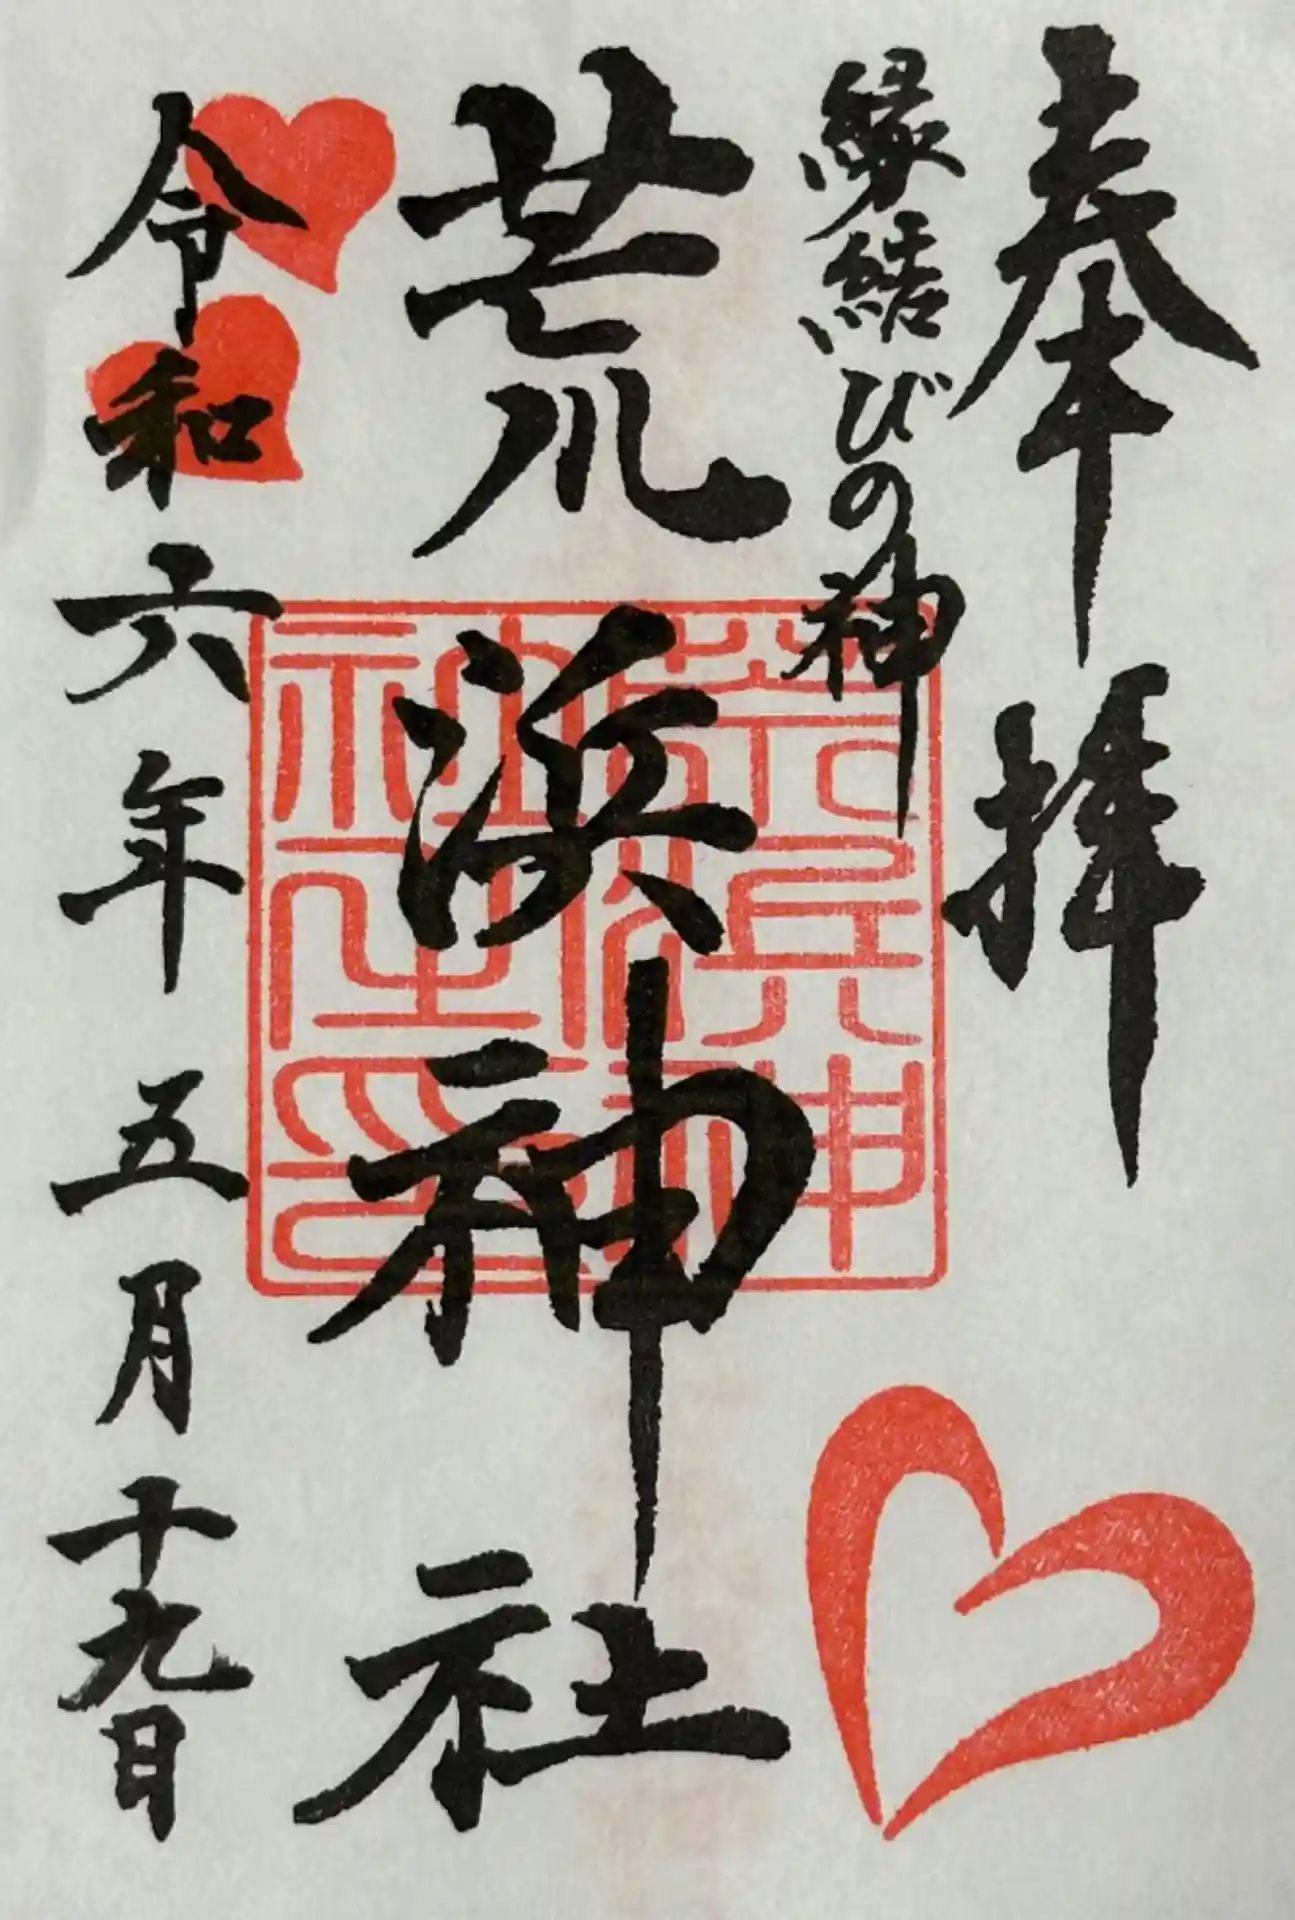 奉拝
縁結びの神
荒浜神社
令和六年五月十九日